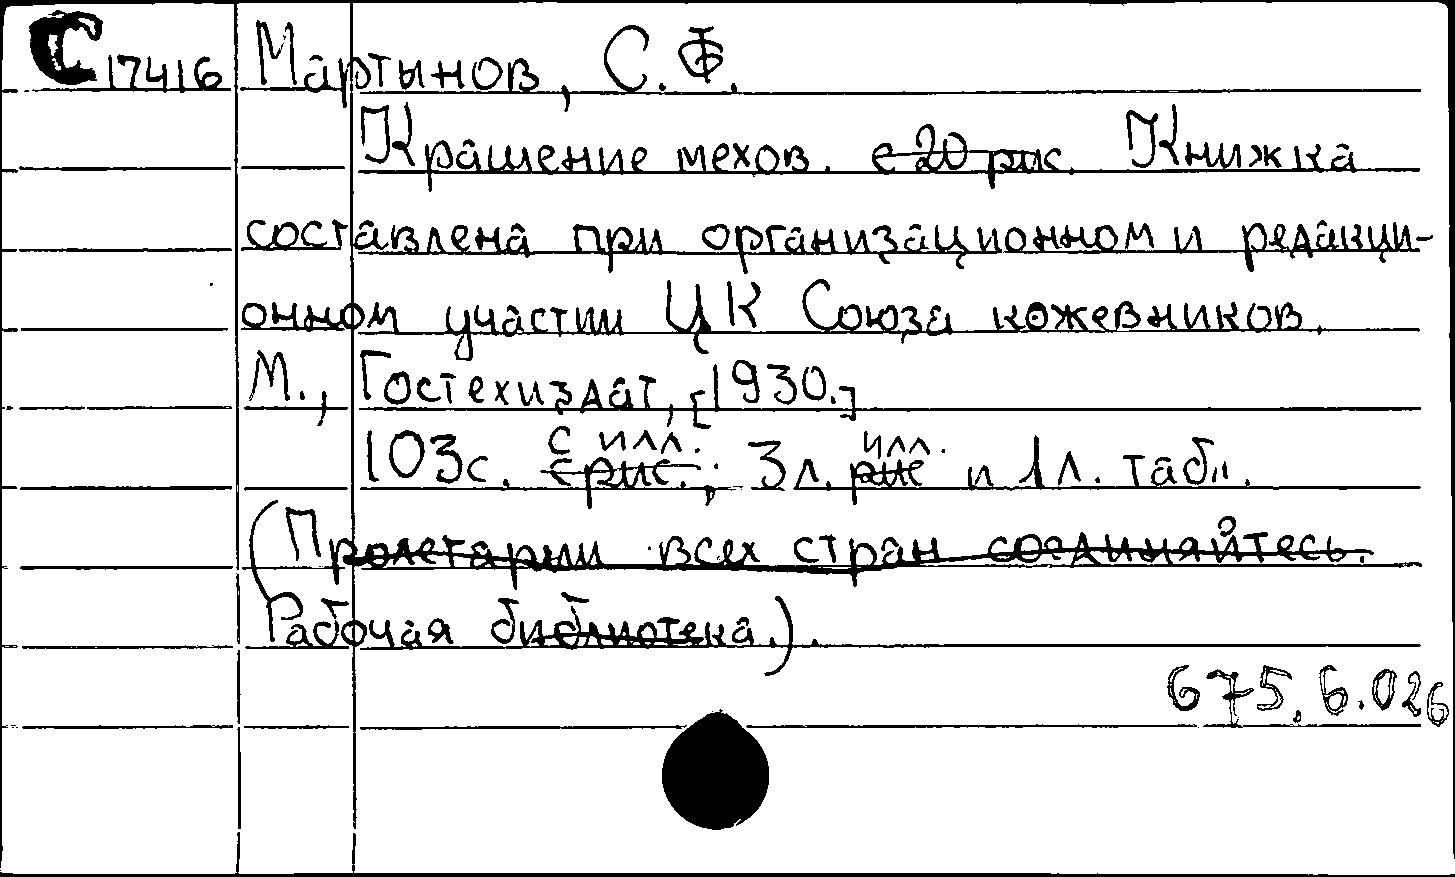 С 17416 Мартынов, С. Ф.
Крашение мехов. с 20 рис. Книжка
составлена при организационном и редакци-
онном участии ЦК Союза кожевников.
М., Гостехиздат, [1930.]
с илл. илл.
103с. с рис.; 3 л. рис и 1 л. табл.
(Пролетарии всех стран соединяйтесь.
Рабочая библиотека.).
675.6.026